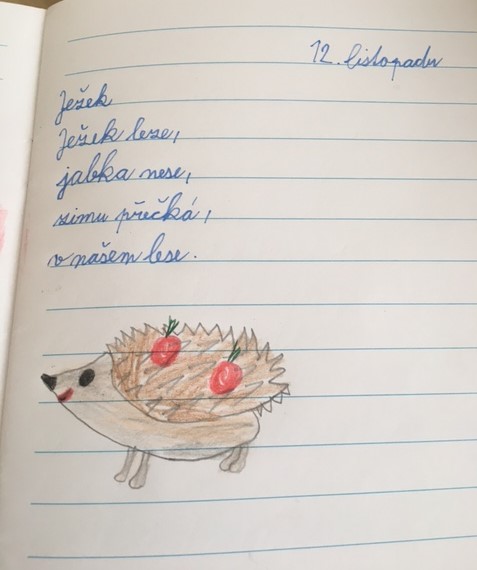 12. listopadu
Ježek
Ježek leze,
jabka nese,
zimu přečká,
v našem lese.